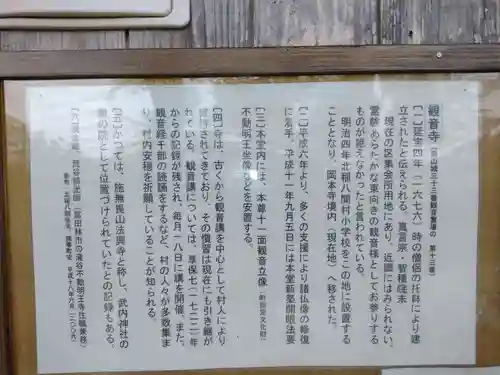 観音寺（南山城三十三番観音霊場の 第十三番）
［一］延宝四年（一六七六）時の僧侶の托鉢により建
立されたと伝えられる、真言宗・智積院末
現在の区集会所用地にあり、近隣にはみられない、
霊験あらたかな東向きの観音様としてお参りする
ものが絶えなかったと言われている。
明治四年北稲八間村小学校をこの地に設置する
こととなり、岡本寺境内（現在地）へ移された。
［二］平成六年より、多くの支援により諸仏像の修復
に着手、平成十一年九月五日には本堂新築開眼法要
［三］本堂内には、本尊十一面観音立像（町指定文化財）
不動明王坐像などを安置する。
［四］寺は、古くから観音講を中心として村人により
維持されてきており、その慣習は現在にも引き継が
れている。観音講については、享保七（一七二二）年
からの記録が残され、毎月一八日に講を開催、また、
観音経千部の読誦をするなど、村の人々が多数集ま
り、村内安穏を祈願していることが知られる。
［五］かつては、施無畏山法興寺と称し、武内神社の
奥の院として位置づけられていたとの記録もある。
平成十八年六月（二〇〇六）